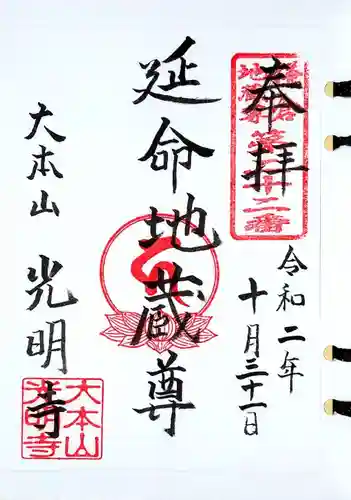 奉拝
鎌倉
地蔵尊
第二十二番
令和二年
十月三十一日
延命地蔵尊
大本山
光明寺
大本山
光明寺